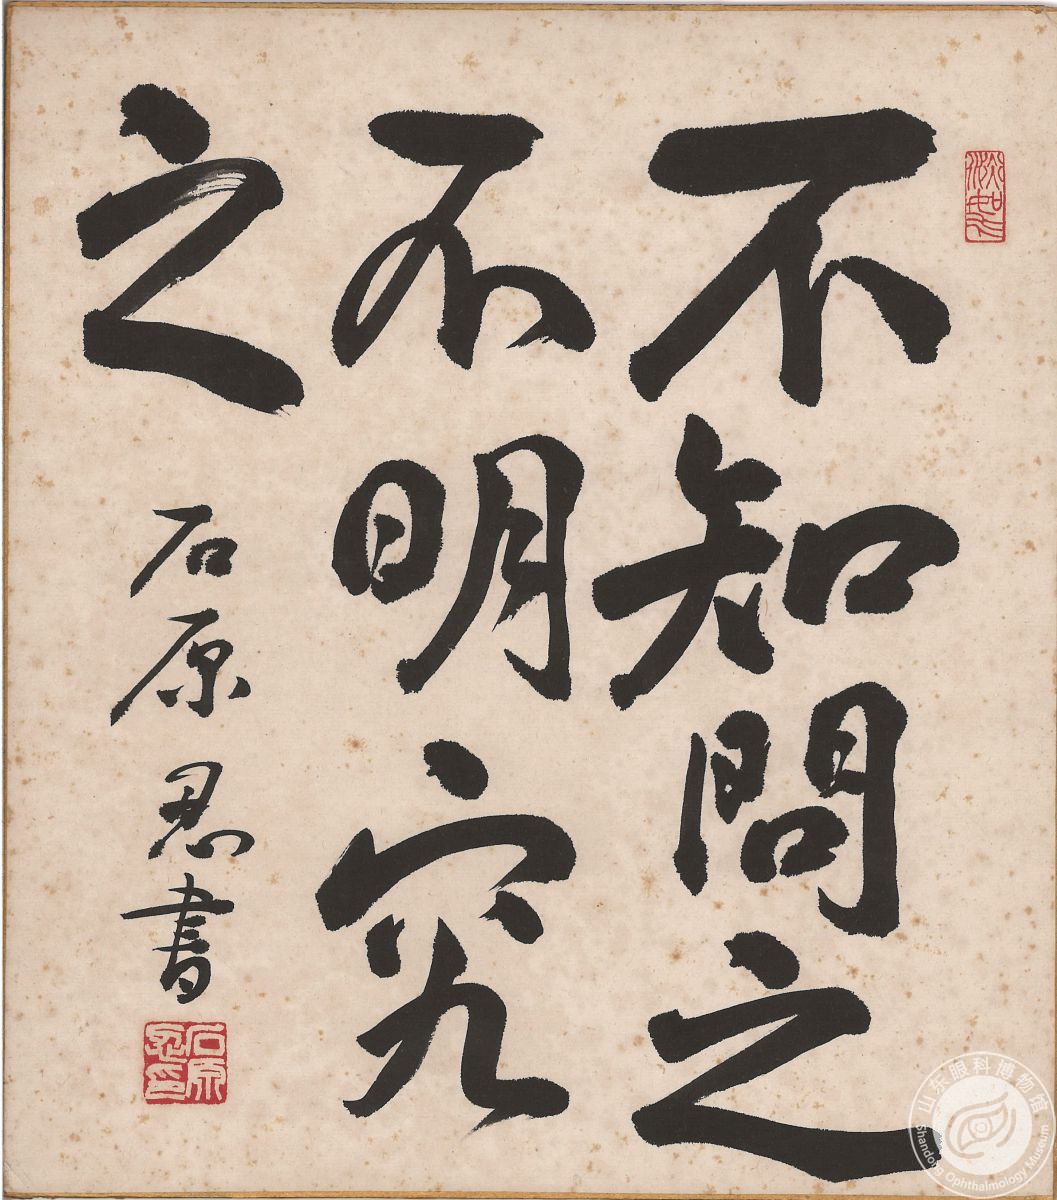 不知問之
不明究
之
石原忍書
石原忍印
山东眼科博物馆
Shandong Ophthalmology Museum